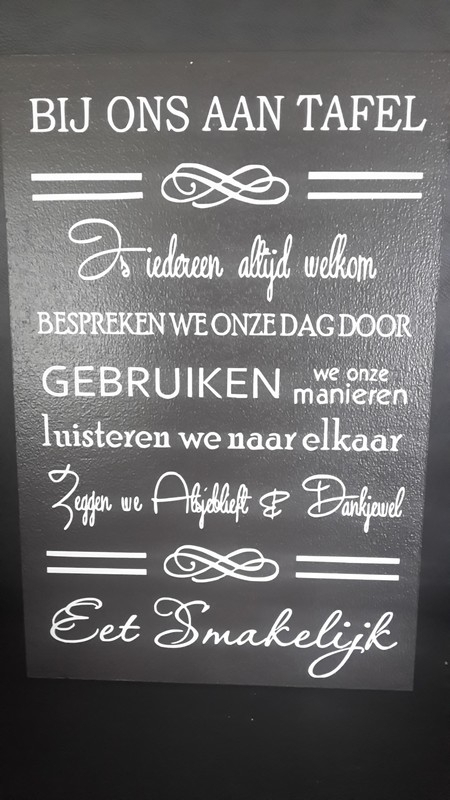 BIJ ONS AAN TAFEL
Is iedereen altijd welkom
BESPREKEN WE ONZE DAG DOOR
GEBRUIKEN we onze manieren
luisteren we naar elkaar
Zeggen we Alsjeblieft & Dankjewel
Eet Smakelijk